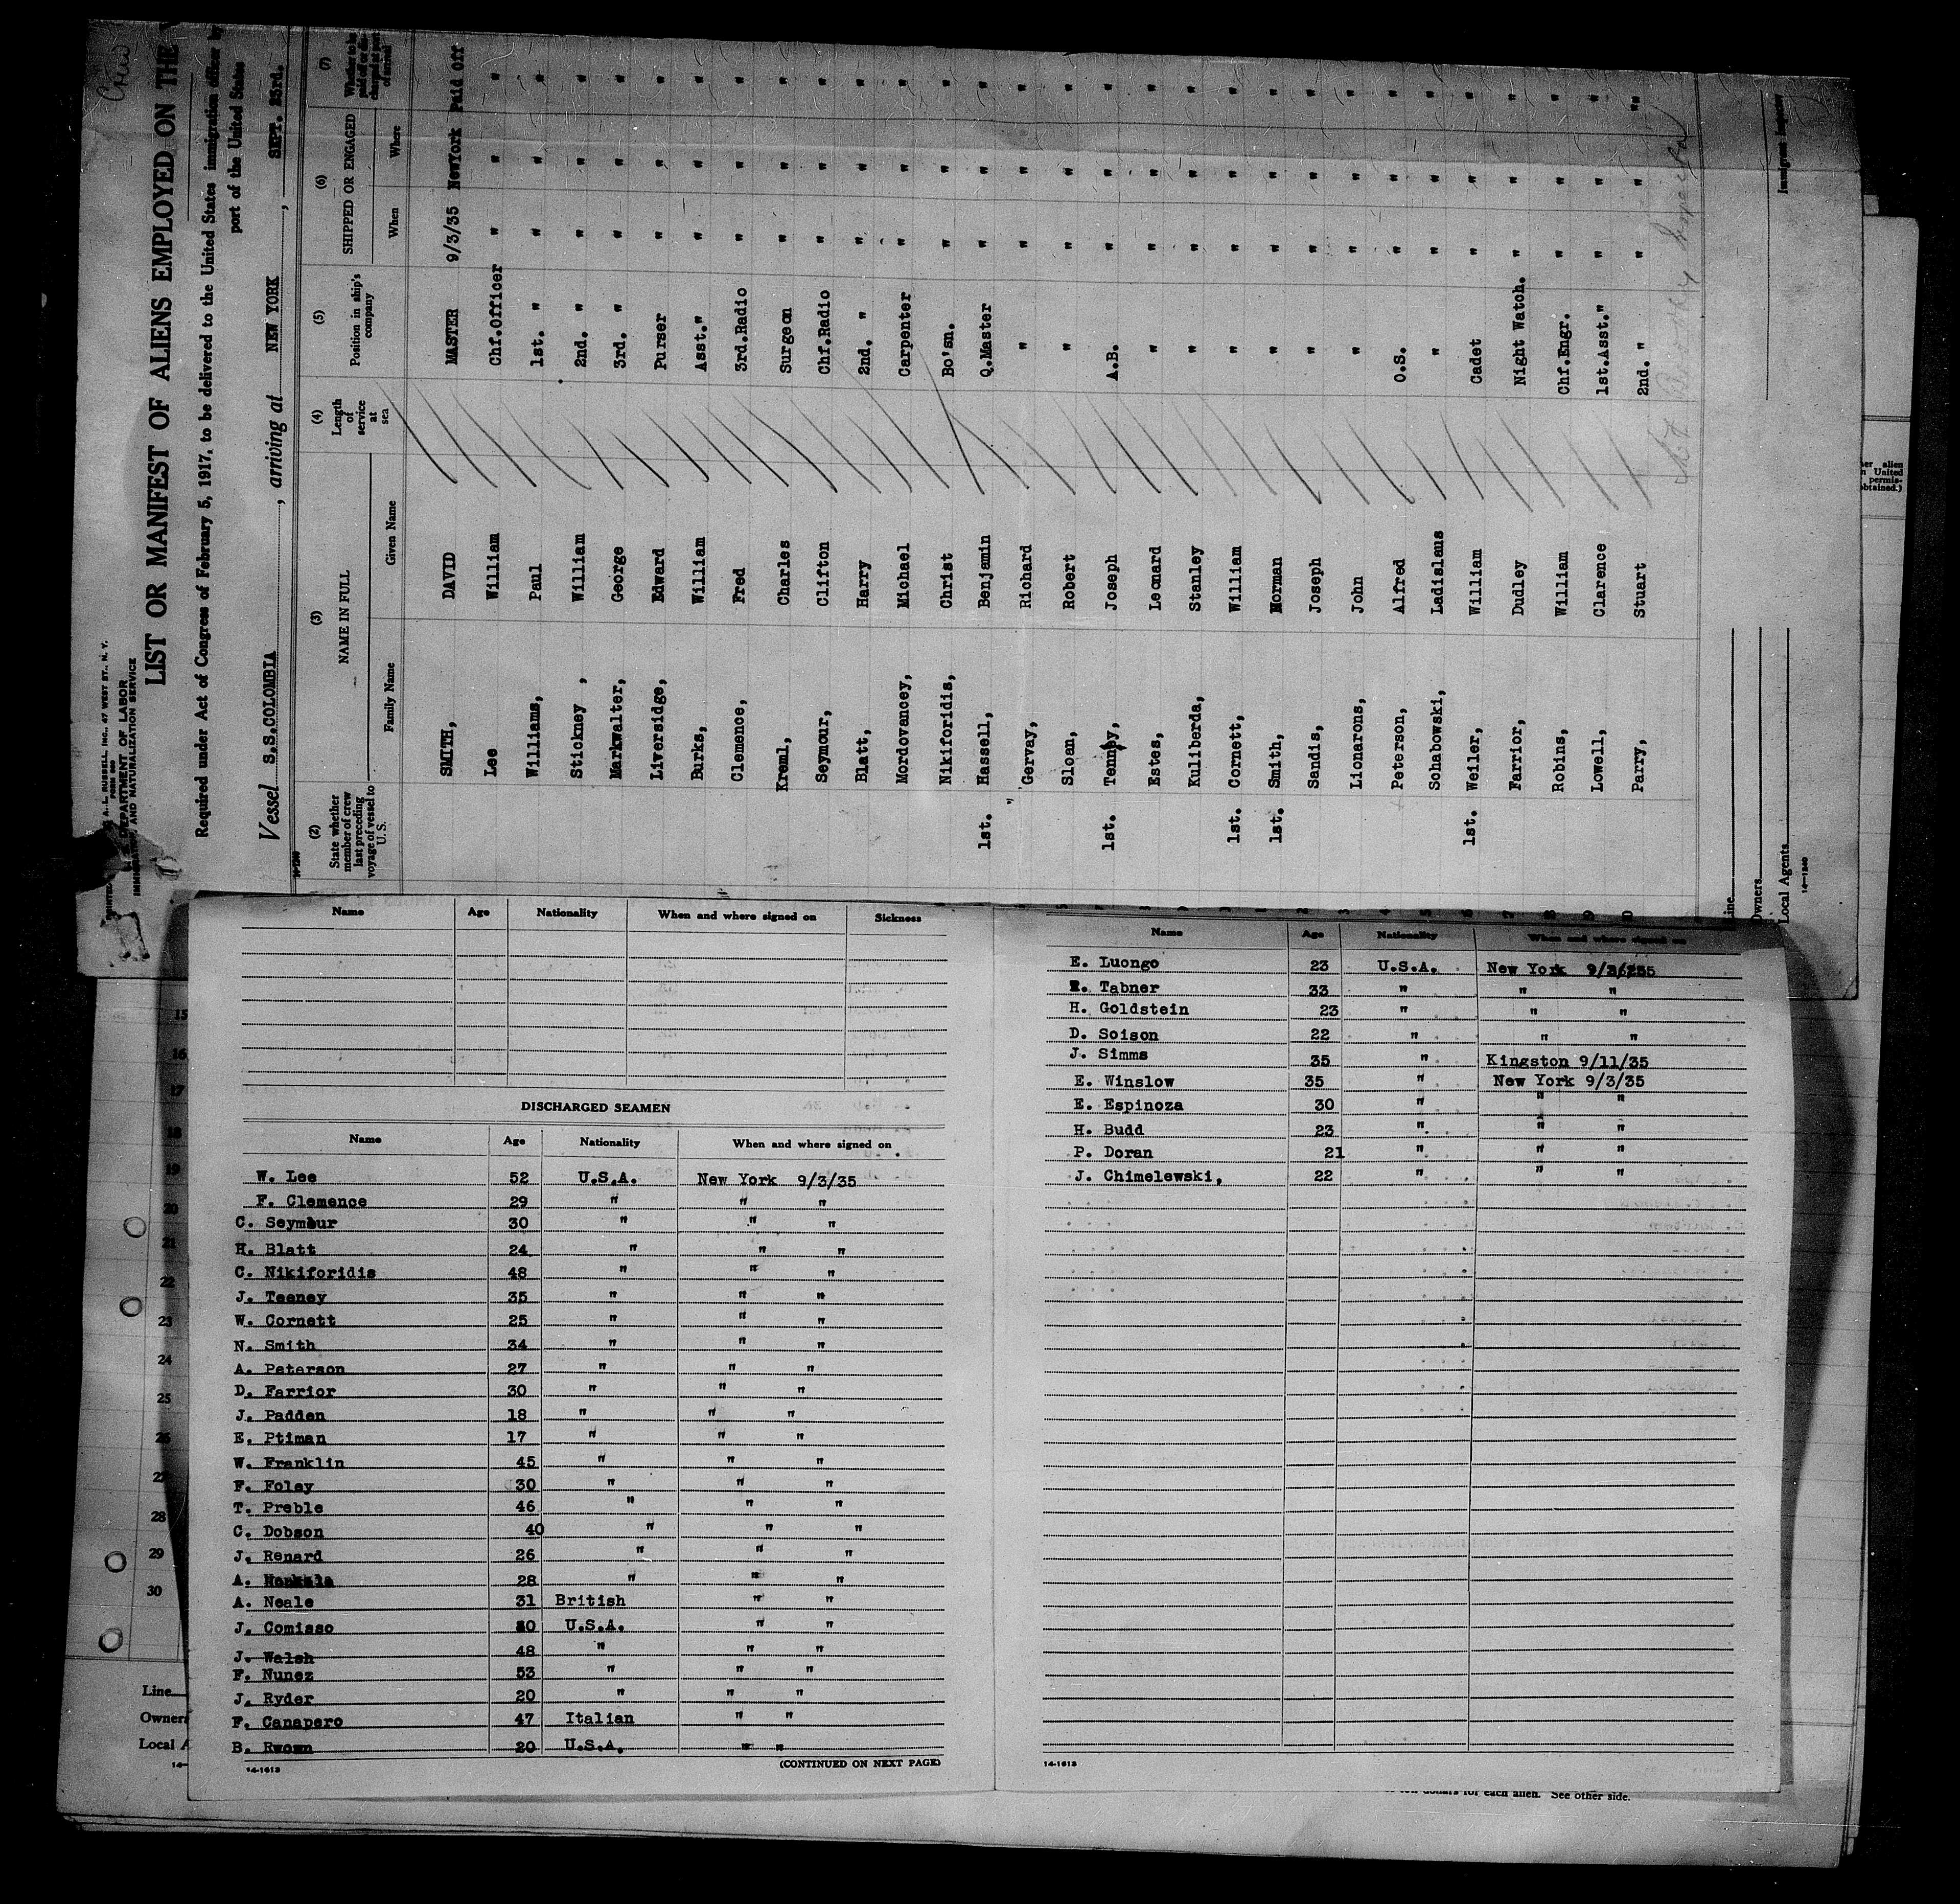 Crew
PRINTED
A. L. RUSSELL INC., 47 WEST ST., N. Y.
FORM 680
DEPARTMENT OF LABOR
IMMIGRATION AND NATURALIZATION SERVICE
LIST OR MANIFEST OF ALIENS EMPLOYED ON THE
Required under Act of Congress of February 5, 1917, to be delivered to the United States immigration officer by
port of the United States
Vessel S.S.COLOMBIA, arriving at NEW YORK, SEPT. 23rd.
(2) (3) (4) (5) (6) (7)
State whether member of crew last preceding voyage of vessel to U. S.
NAME IN FULL
Family Name Given Name
Length of service at sea
Position in ship's company
SHIPPED OR ENGAGED
When Where
Whether to be paid off or discharged at port of arrival
SMITH, DAVID MASTER 9/3/35 NewYork Paid Off
Lee William Chf.Officer " " "
Williams, Paul 1st. " " " "
Stickney , William 2nd. " " " "
Markwalter, George 3rd. " " " "
Liversidge, Edward Purser " " "
Burks, William Asst." " " "
Clemence, Fred 3rd.Radio " " "
Kreml, Charles Surgeon " " "
Seymour, Clifton Chf.Radio " " "
Blatt, Harry 2nd. " " " "
Mordovancey, Michael Carpenter " " "
Nikiforidis, Christ Bo'sn. " " "
1st. Hassell, Benjamin Q.Master " " "
" Gervay, Richard " " " "
Sloan, Robert " " " "
1st. Tenney, Joseph A.B. " " "
Estes, Leonard " " " "
Kuliberda, Stanley " " " "
1st. Cornett, William " " " "
1st. Smith, Norman " " " "
Sandis, Joseph " " " "
Lionarons, John " " " "
Peterson, Alfred O.S. " " "
Schabowski, Ladislaus " " " "
1st. Weiler, William Cadet " " "
Farrior, Dudley Night Watch. " " "
Robins, William Chf.Engr. " " "
Lowell, Clarence 1st.Asst." " " "
Parry, Stuart 2nd. " " " "
Line
Owners
Local Agents
14-1240
Immigrant Inspector
her alien
n United
permis-
obtained.)
Name Age Nationality When and where signed on Sickness
DISCHARGED SEAMEN
Name Age Nationality When and where signed on
W. Lee 52 U.S.A. New York 9/3/35
F. Clemence 29 " " "
C. Seymour 30 " " "
H. Blatt 24 " " "
C. Nikiforidis 48 " " "
J. Teeney 35 " " "
W. Cornett 25 " " "
N. Smith 34 " " "
A. Peterson 27 " " "
D. Farrior 30 " " "
J. Padden 18 " " "
E. Ptiman 17 " " "
W. Franklin 45 " " "
F. Foley 30 " " "
T. Preble 46 " " "
C. Dobson 40 " " "
J. Renard 26 " " "
A. 28 " " "
A. Neale 31 British " "
J. Comisso U.S.A. " "
J. Walsh 48 " " "
F. Nunez 53 " " "
J. Ryder 20 " " "
F. Canapero 47 Italian " "
B. 20 U.S.A. " "
14-1613 (CONTINUED ON NEXT PAGE)
Name Age Nationality When and where signed on
E. Luongo 23 U.S.A. New York
Tabner 33 " " "
H. Goldstein 23 " " "
D. Soison 22 " " "
J. Simms 35 " Kingston 9/11/35
E. Winslow 35 " New York 9/3/35
E. Espinoza 30 " " "
H. Budd 23 " " "
P. Doran 21 " " "
J. Chimelewski, 22 " " "
14-1613
15
16
17
18
19
20
21
22
23
24
25
26
27
28
29
30
Line
Owners
Local A
14-
dollars for each alien. See other side.